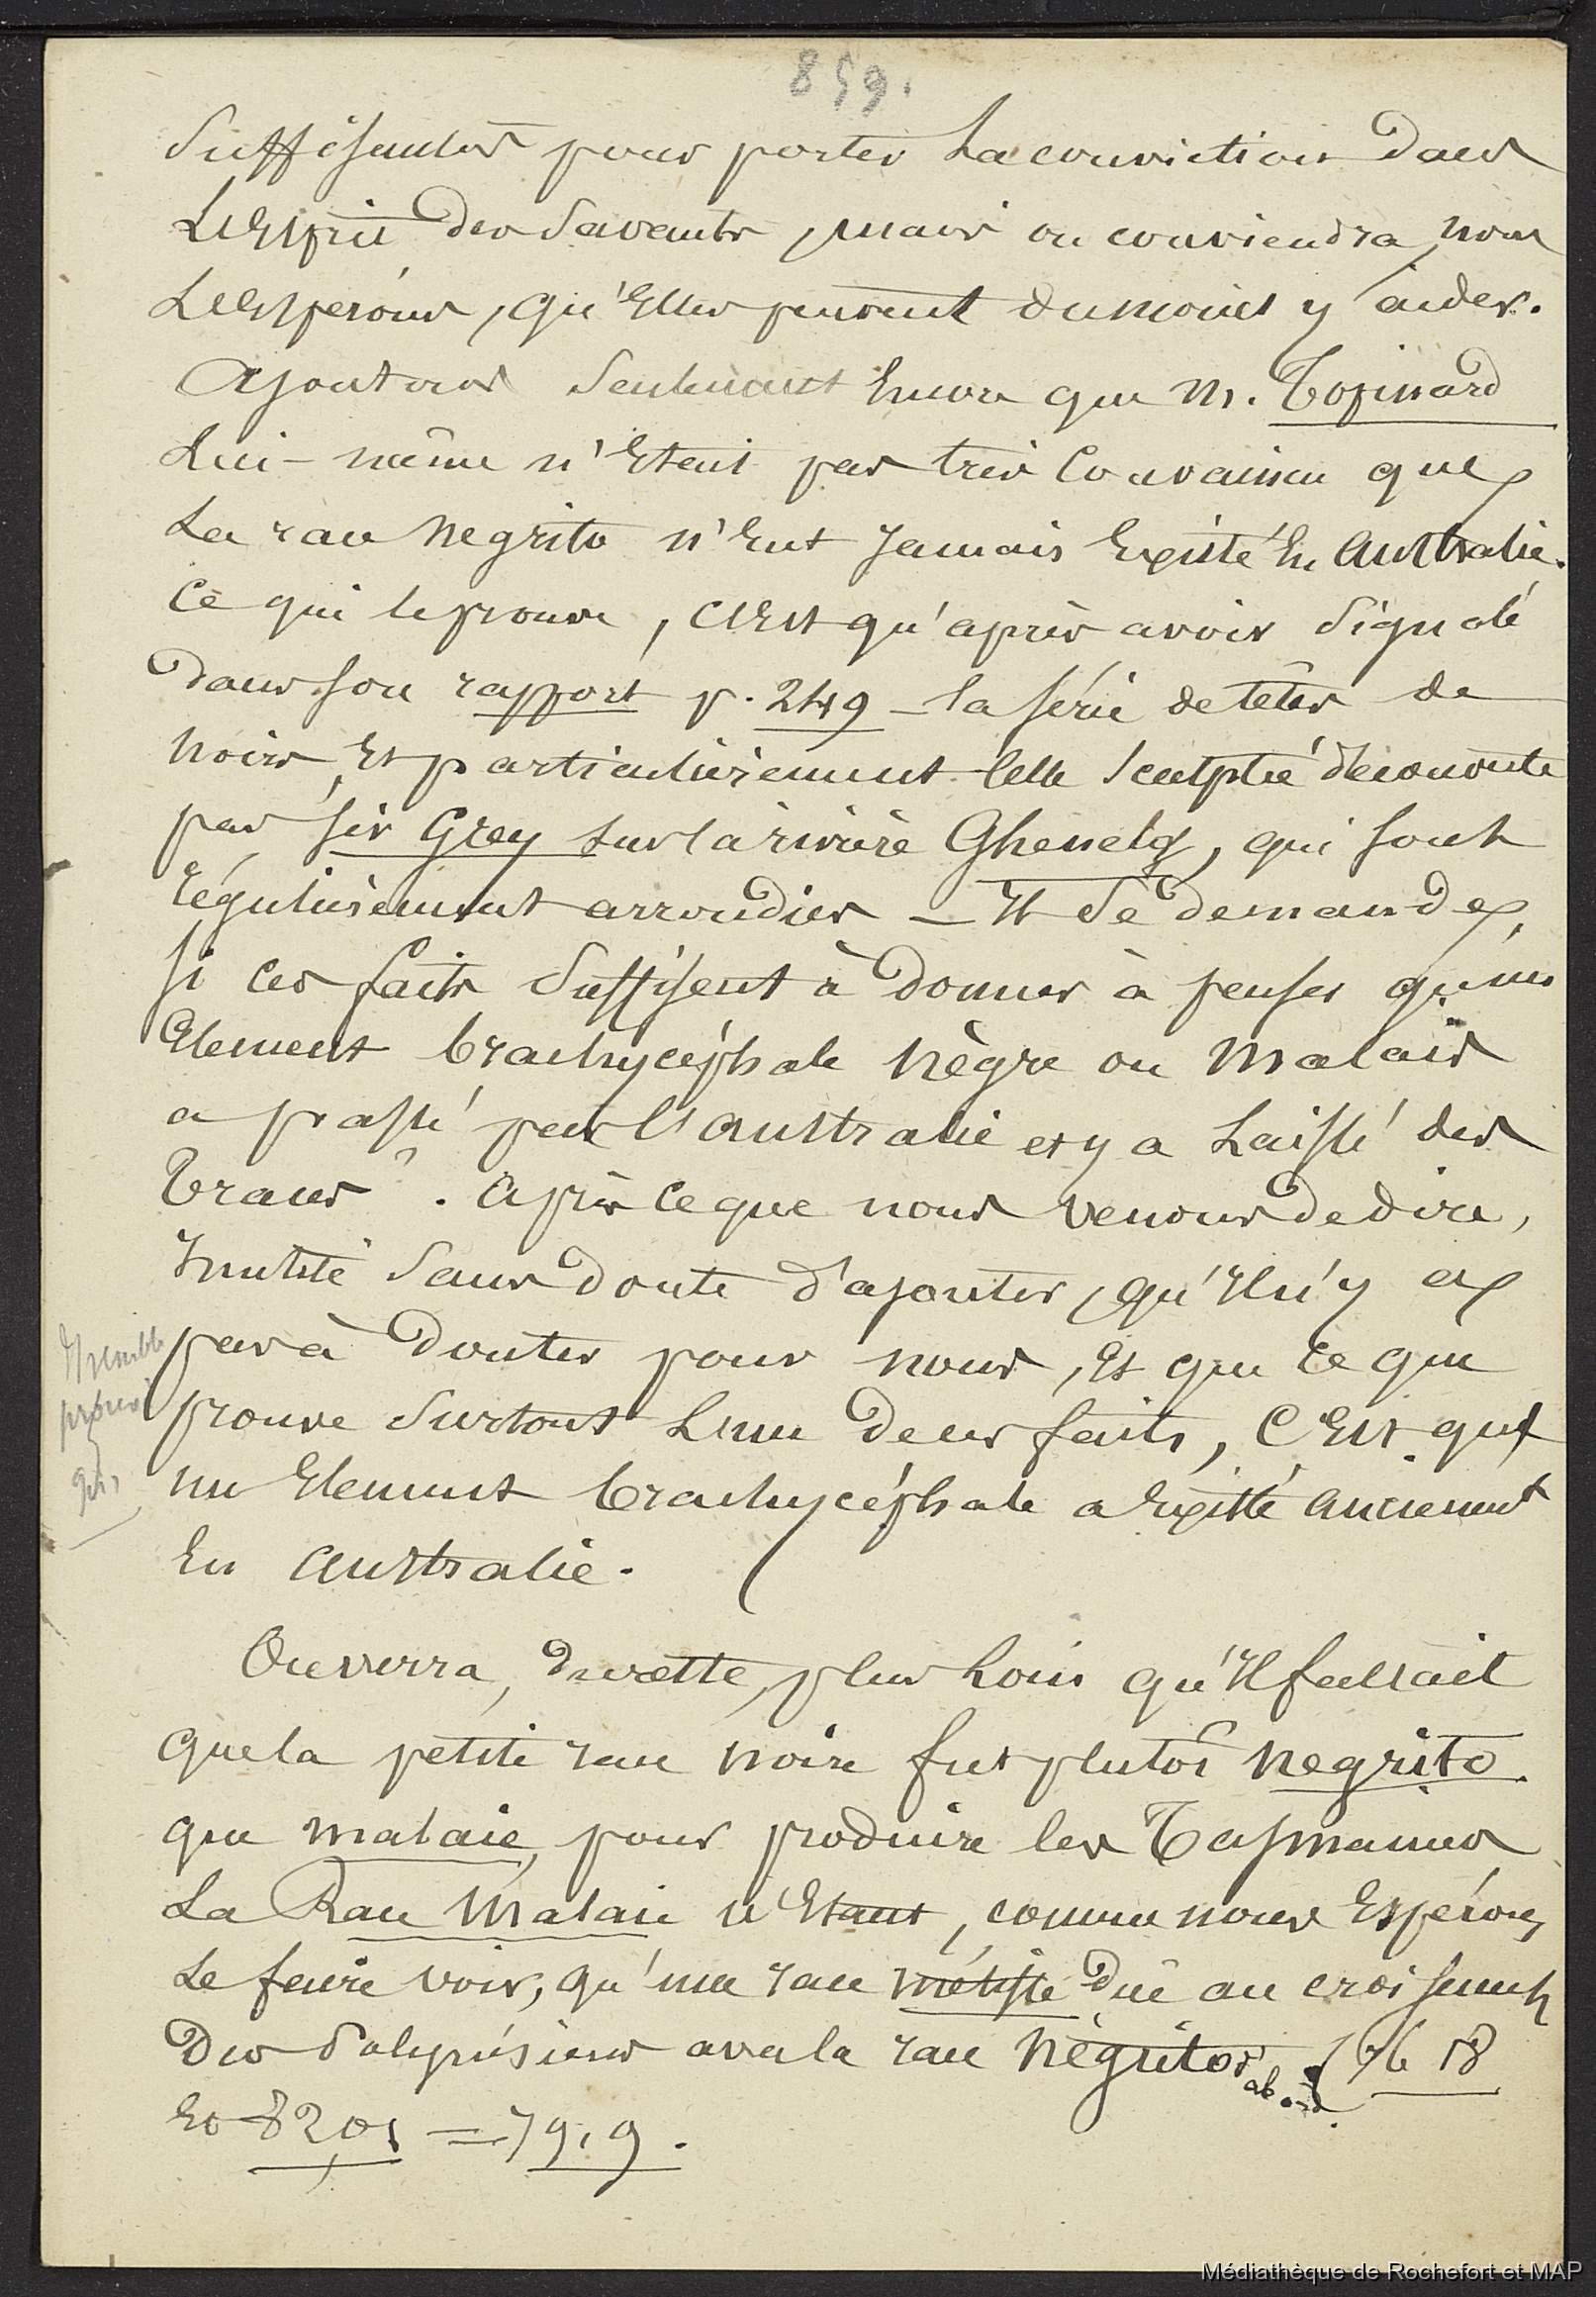 859.
Suffisantes pour porter La conviction Dans
L'Esprit des Savants, mais on conviendra, nous
L'Esperons, qu'Elles peuvent du moins y aider.
Ajoutons Seulement Encore que M. Topinard
Lui-même n'Etait pas très Convaincu que
La race Negrito n'Eut Jamais Existé En Australie.
Ce qui le prouve, C'Est qu'après avoir Signalé
Dans son rapport p. 249 - la série de têtes de
Noirs, Et particulièrement Celle Sculptée découverte
par Sir Grey sur la rivière Ghenelg, qui sont
régulièrement arrondies - Il Se demande,
si ces faits Suffisent à Donner à penser qu'un
Element brachycéphale Nègre ou Malais
a passé par l'Australie et y a Laissé des
Traces ?. Après ce que nous venons de dire,
Inutile Sans doute d'ajouter, qu'Il n'y a
pas à Douter pour nous, Et que ce que
Il semble
prouver
que
prouve Surtout L'un de ces faits, C'Est que
un Element brachycéphale a Existé anciennement
En Australie.
On verra, Du reste, plus Loin qu'Il fallait
que la petite race noire fut plutôt Negrito
que malaie, pour produire les Tasmaniens
La Race Malaie n'Etant, comme nous Espérons
Le faire voir, qu'une race métisse Due au croisement
Des Polynésiens avec la race Négritos (76 18
Et 8201 = 79,9.
Médiathèque de Rochefort et MAP